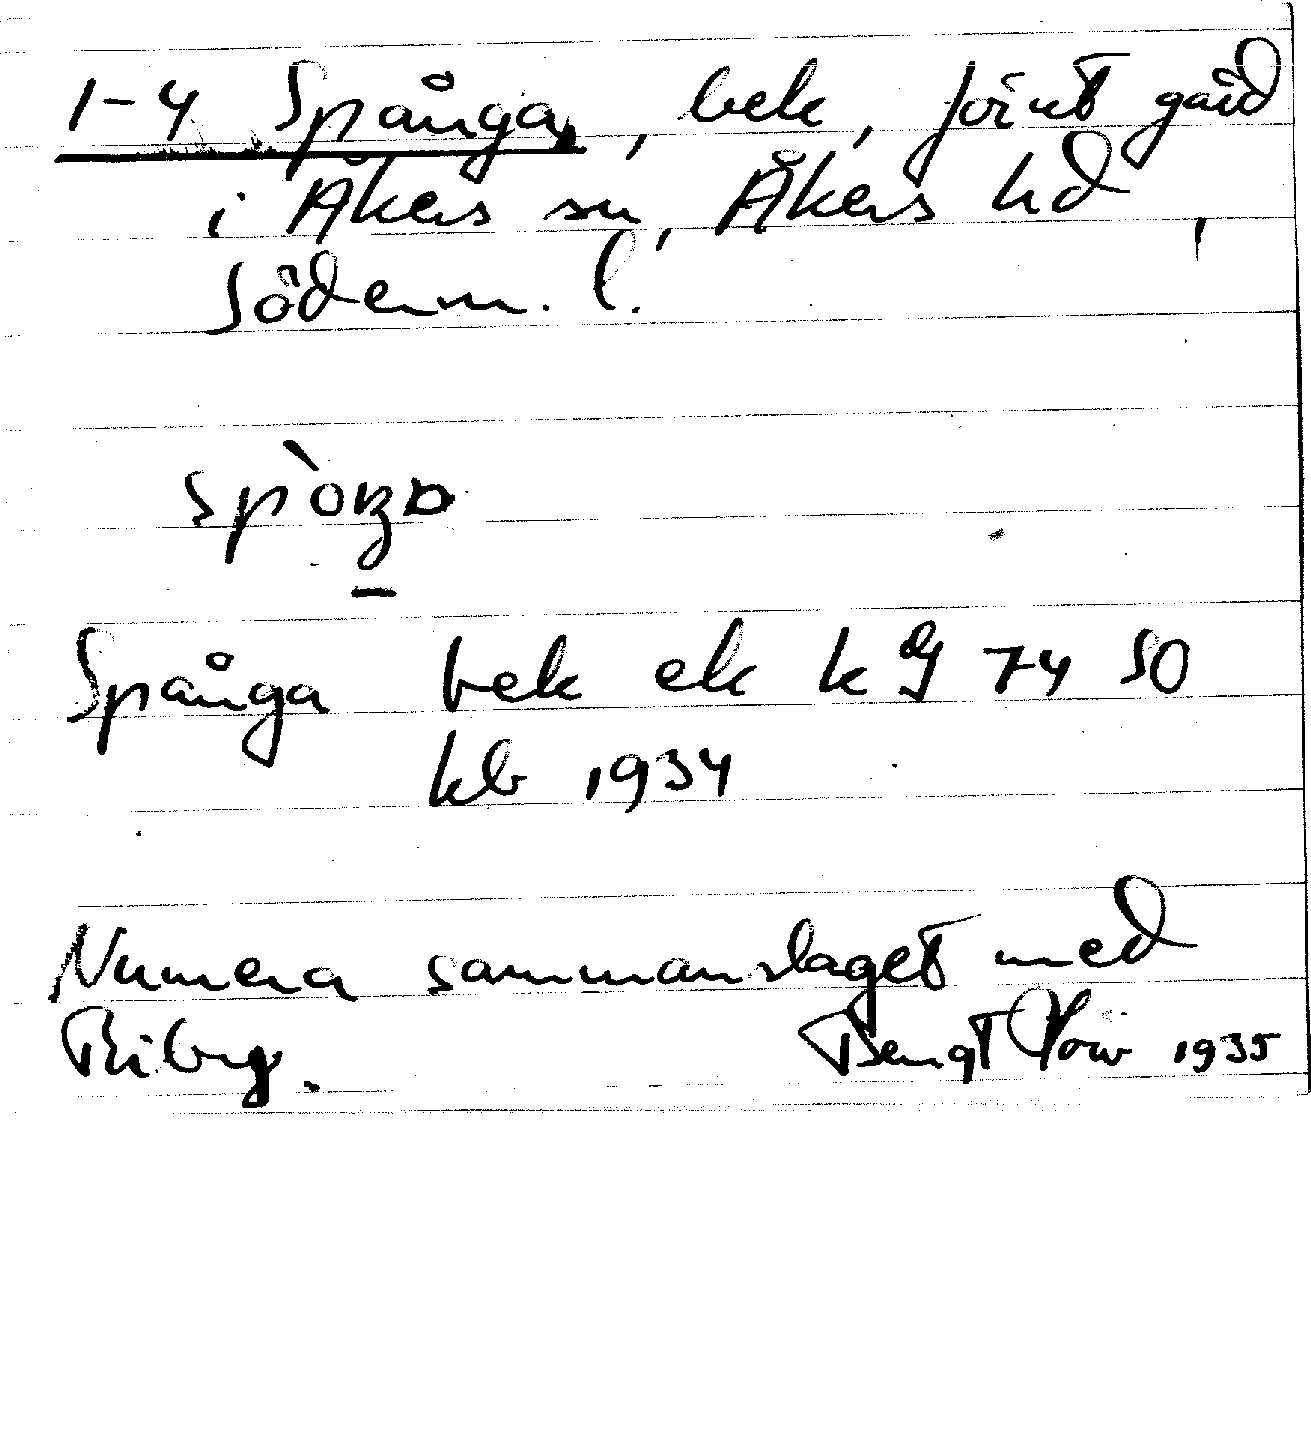 1-4 Spånga, bek, förut gård
i Åkers sn, Åkers hd,
Söderm. l.
Spånga bek ek k bl 74 SO
kb 1934
Numera sammanslaget med
Berga. Bengt 1935